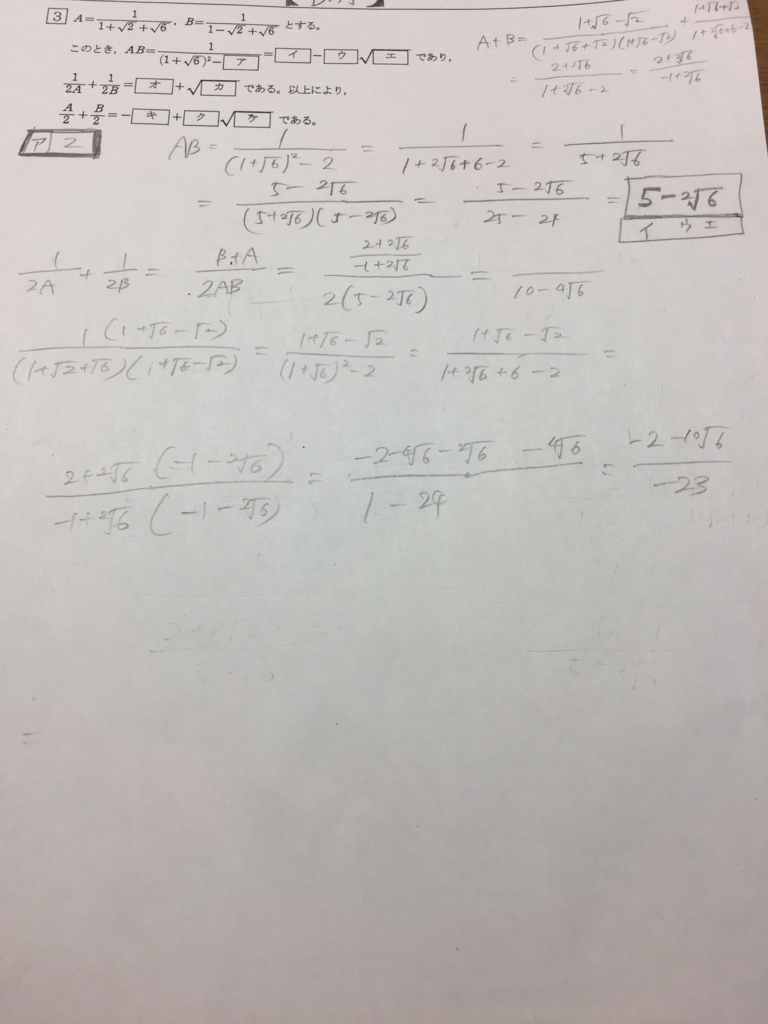 3 A=1/(1+√2+√6), B=1/(1-√2+√6) とする。
このとき, AB=1/((1+√6)²-ア)=イ-ウ√エ であり,
1/2A+1/2B=オ+√カ である。以上により,
A/2+B/2=-キ+ク√ケ である。
A+B=(1+√6-√2)/((1+√6+√2)(1+√6-√2))+(1+√6+√2)/(1+2√6+6-2)
=(2+2√6)/(1+2√6-2)=(2+2√6)/(-1+2√6)
ア 2
AB=1/((1+√6)²-2)=1/(1+2√6+6-2)=1/(5+2√6)
=(5-2√6)/((5+2√6)(5-2√6))=(5-2√6)/(25-24)=5-2√6
イ ウ エ
1/2A+1/2B=(B+A)/2AB=((2+2√6)/(-1+2√6))/(2(5-2√6))=/(10-4√6)
1(1+√6-√2)/((1+√2+√6)(1+√6-√2))=(1+√6-√2)/((1+√6)²-2)=(1+√6-√2)/(1+2√6+6-2)=
2+2√6(-1-2√6)/-1+2√6(-1-2√6)=(-2-4√6-2√6-4√6)/(1-24)=(-2-10√6)/(-23)
=